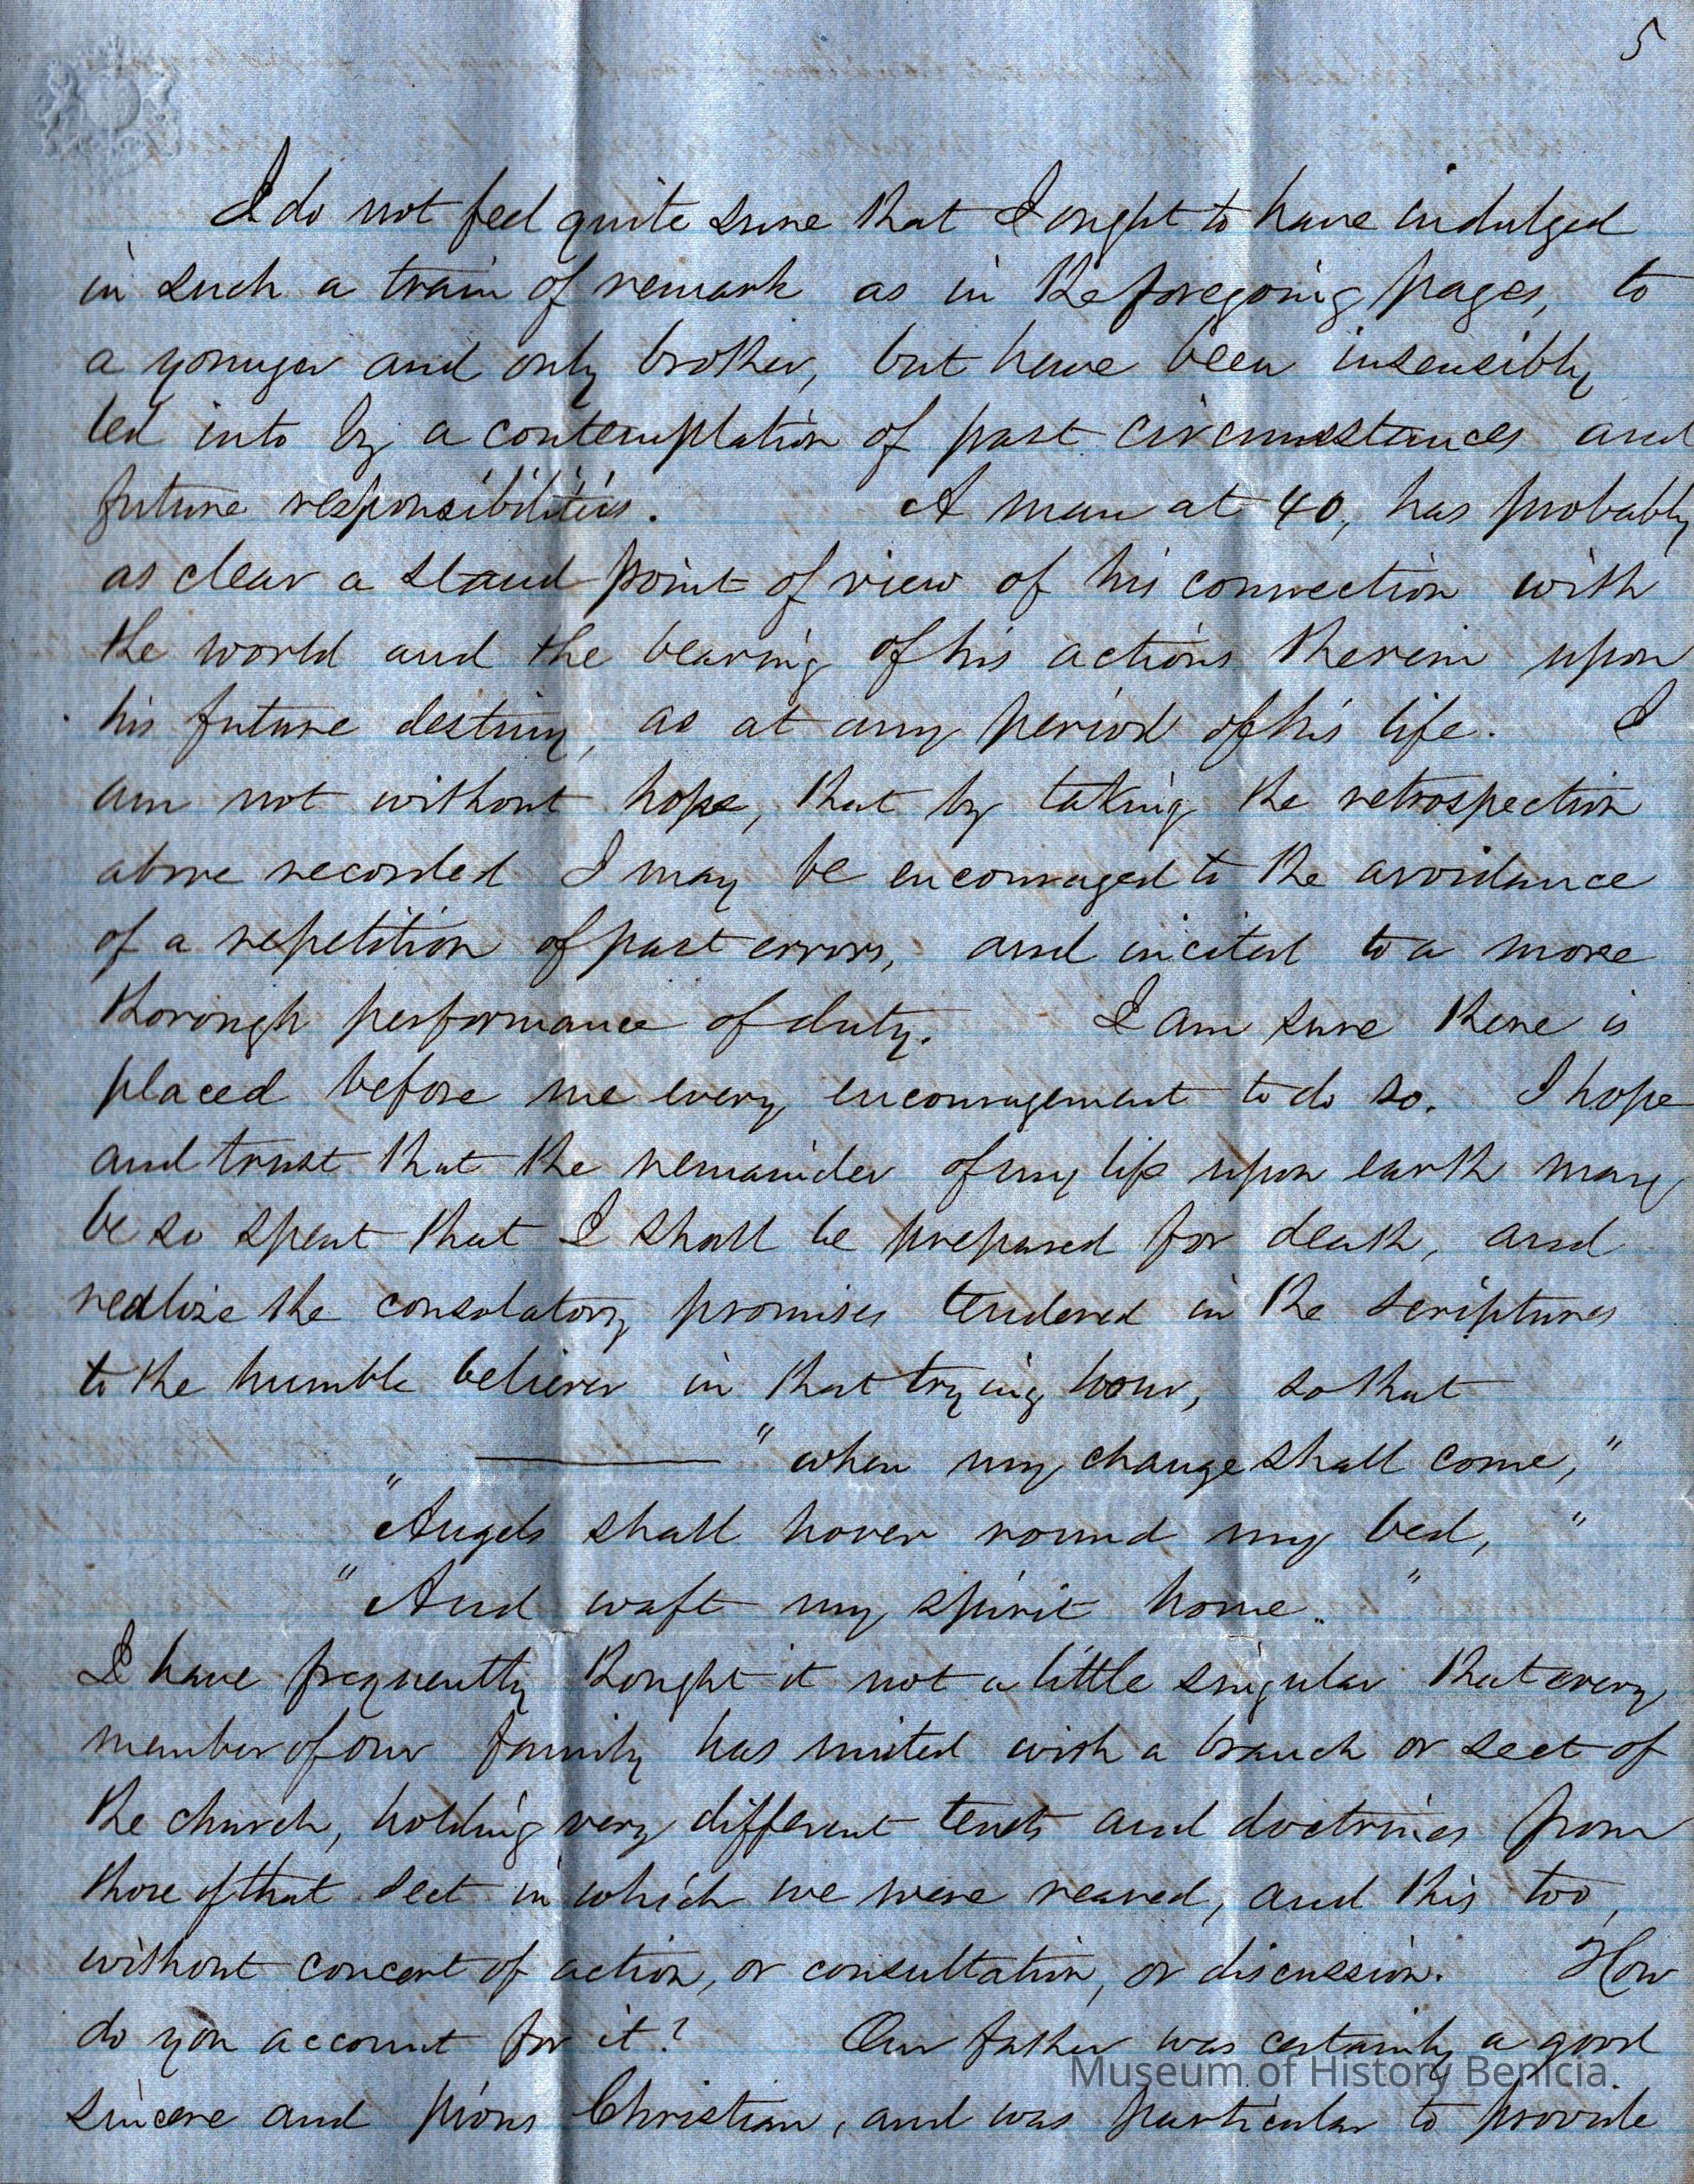 5
I do not feel quite sure that I ought to have indulged
in such a train of remark as in the foregoing pages, to
a younger and only brother, but have been insensibly
led into by a contemplation of past circumstances and
future responsibilities. A man at 40, has probably
as clear a stand point of view of his connection with
the world and the bearing of his actions therein upon
his future destiny, as at any period of his life. I
am not without hope, that by taking the retrospection
above recorded I may be encouraged to the avoidance
of a repetition of past errors, and incited to a more
thorough performance of duty. I am sure there is
placed before me every encouragement to do so. I hope
and trust that the remainder of my life upon earth may
be so spent that I shall be prepared for death, and
realize the consolatory promises tendered in the scriptures
to the humble believer in that trying hour, so that
——— "when my change shall come,"
"Angels shall hover round my bed,"
"And waft my spirit home."
I have frequently thought it not a little singular that every
member of our family has united with a branch or sect of
the church, holding very different tenets and doctrines from
those of that sect in which we were reared, and this too,
without concert of action, or consultation, or discussion. How
do you account for it? Our father was certainly a good
Museum of History Benicia.
sincere and pious Christian, and was particular to provide